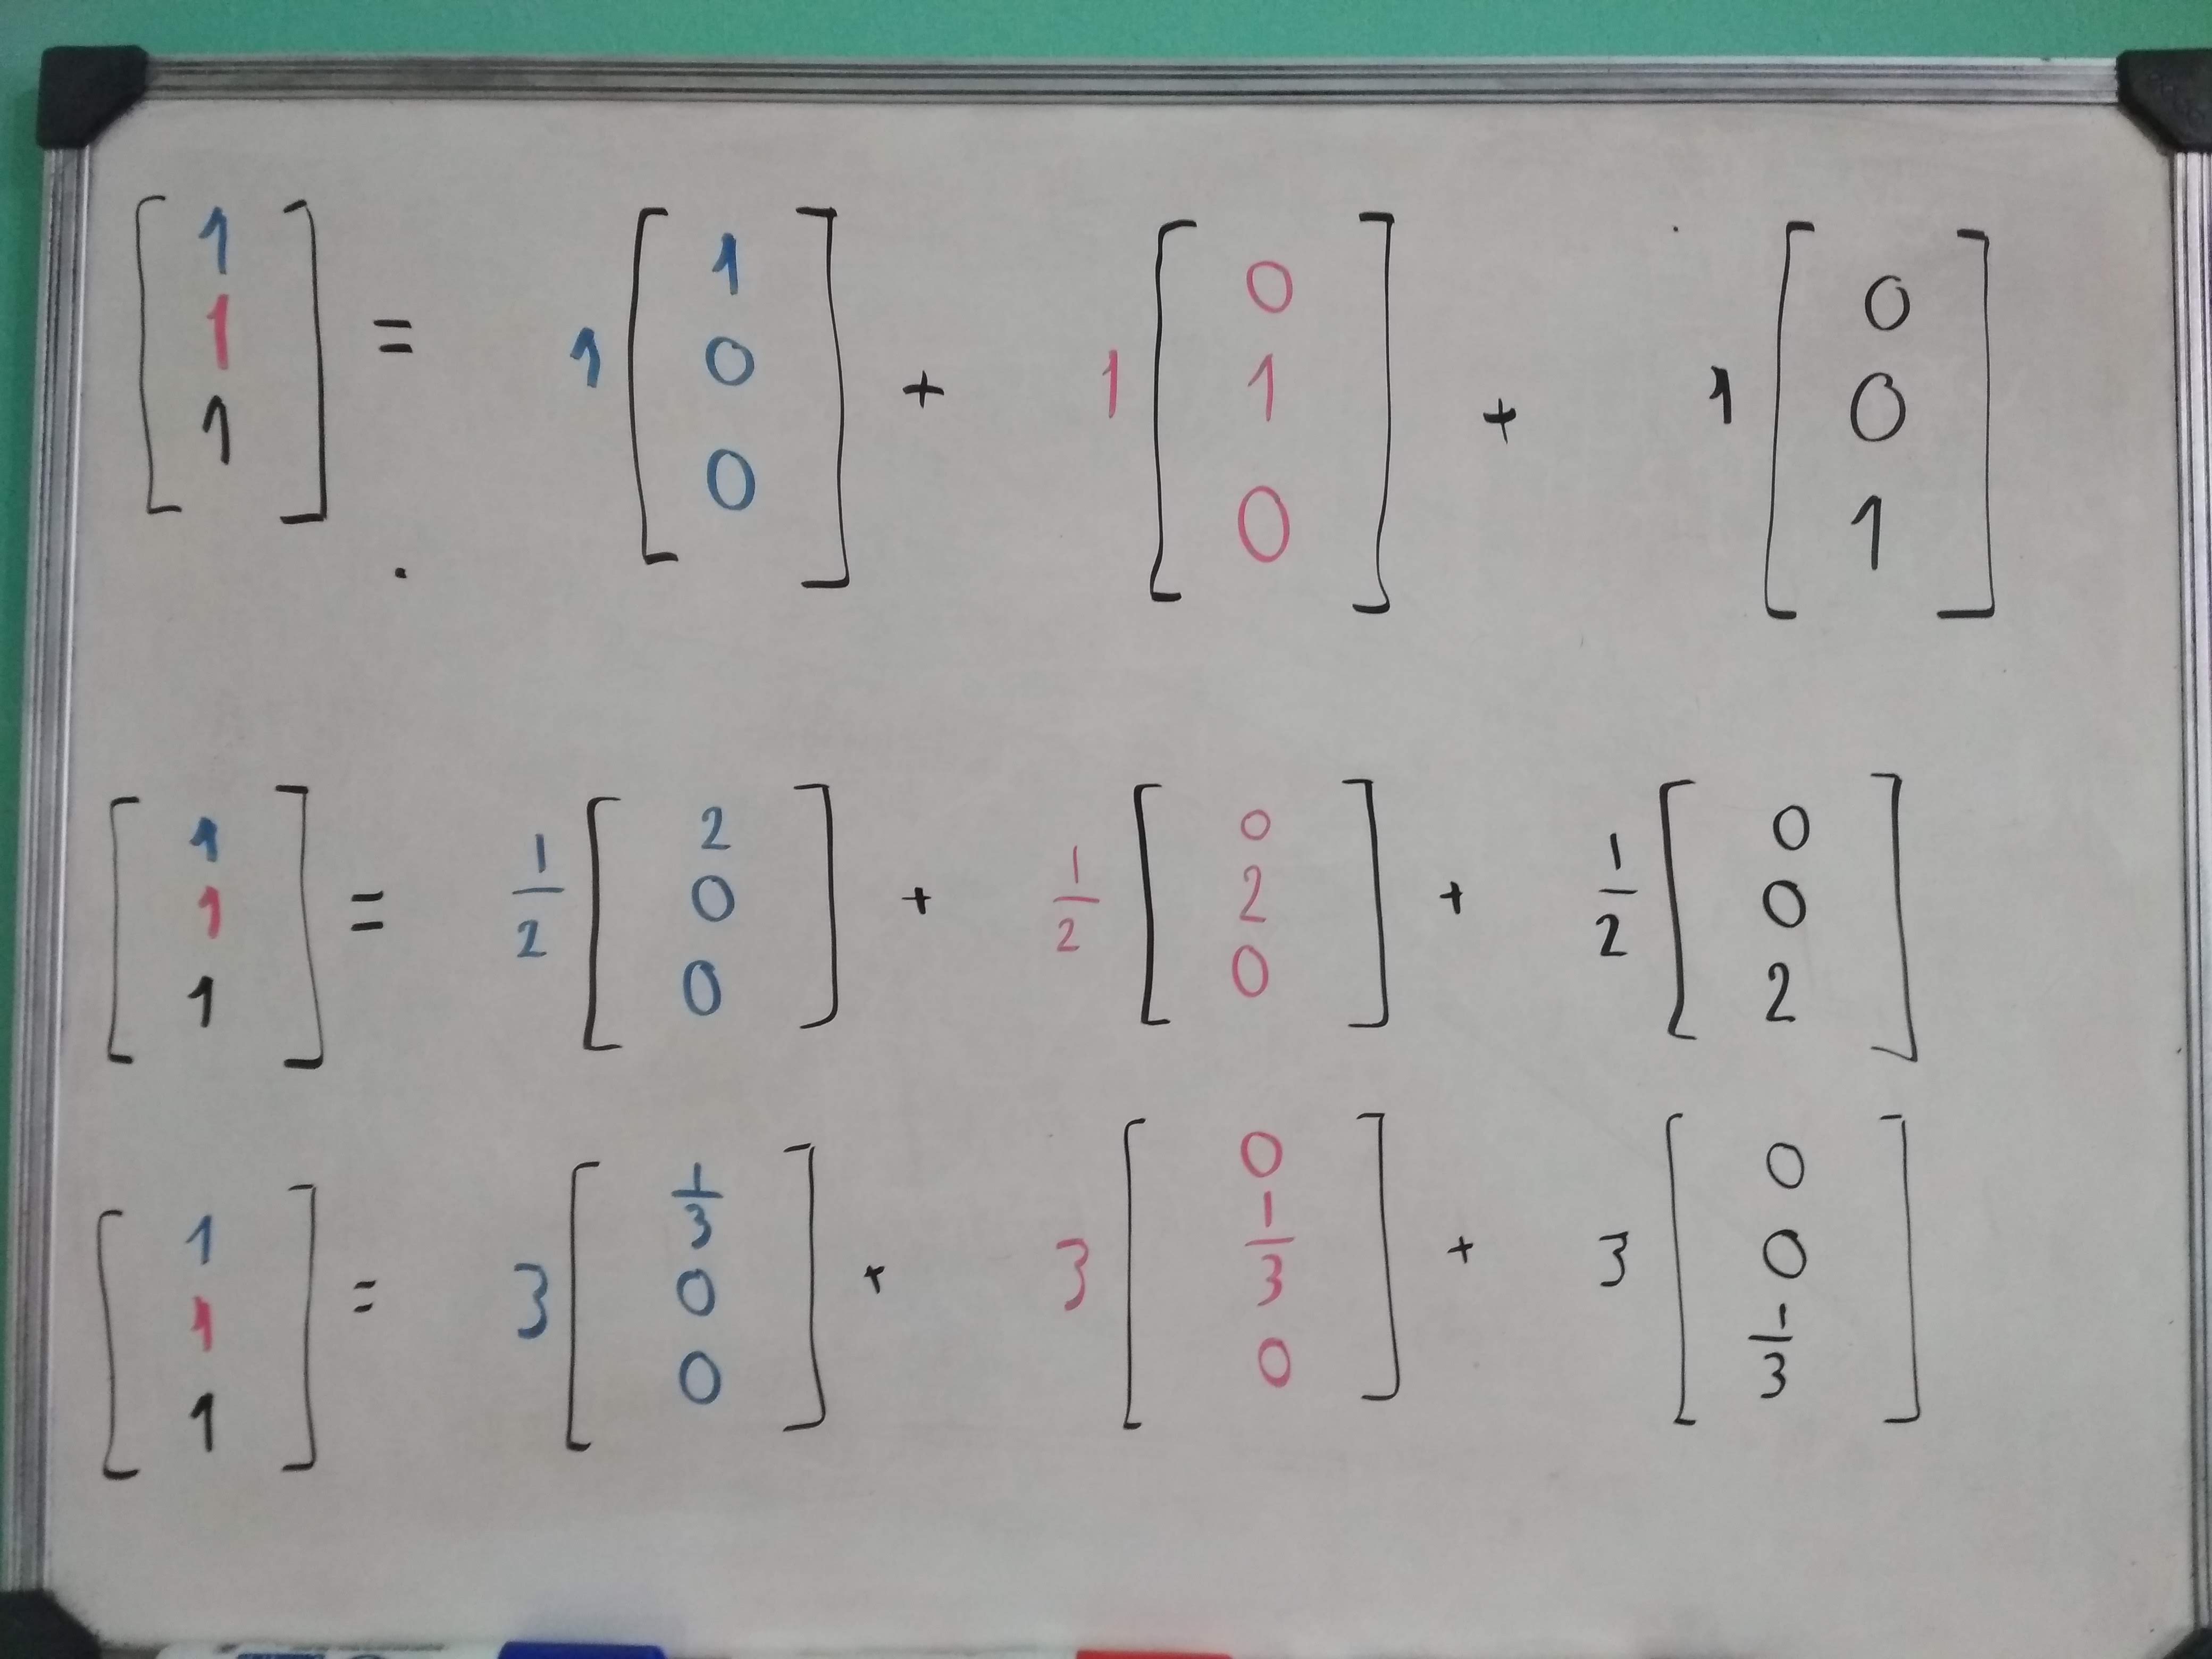 [1 1 1] = 1 [1 0 0] + 1 [0 1 0] + 1 [0 0 1]
[1 1 1] = 1/2 [2 0 0] + 1/2 [0 2 0] + 1/2 [0 0 2]
[1 1 1] = 3 [1/3 0 0] + 3 [0 1/3 0] + 3 [0 0 1/3]